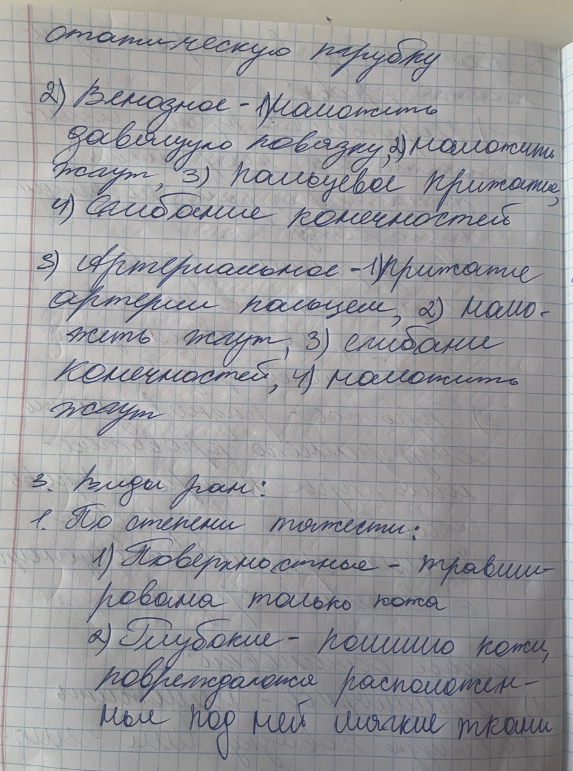 статическую трубку
2) Венозное - 1) наложить
давящую повязку, 2) наложить
жгут, 3) пальцевое прижатие,
4) сгибание конечностей
3) Артериальное - 1) прижатие
артерии пальцем, 2) нало-
жить жгут, 3) сгибание
конечностей, 4) наложить
жгут
3. Виды ран:
1. По степени тяжести:
1) Поверхностные - травми-
рована только кожа
2) Глубокие - помимо кожи,
повреждаются расположен-
ные под ней мягкие ткани